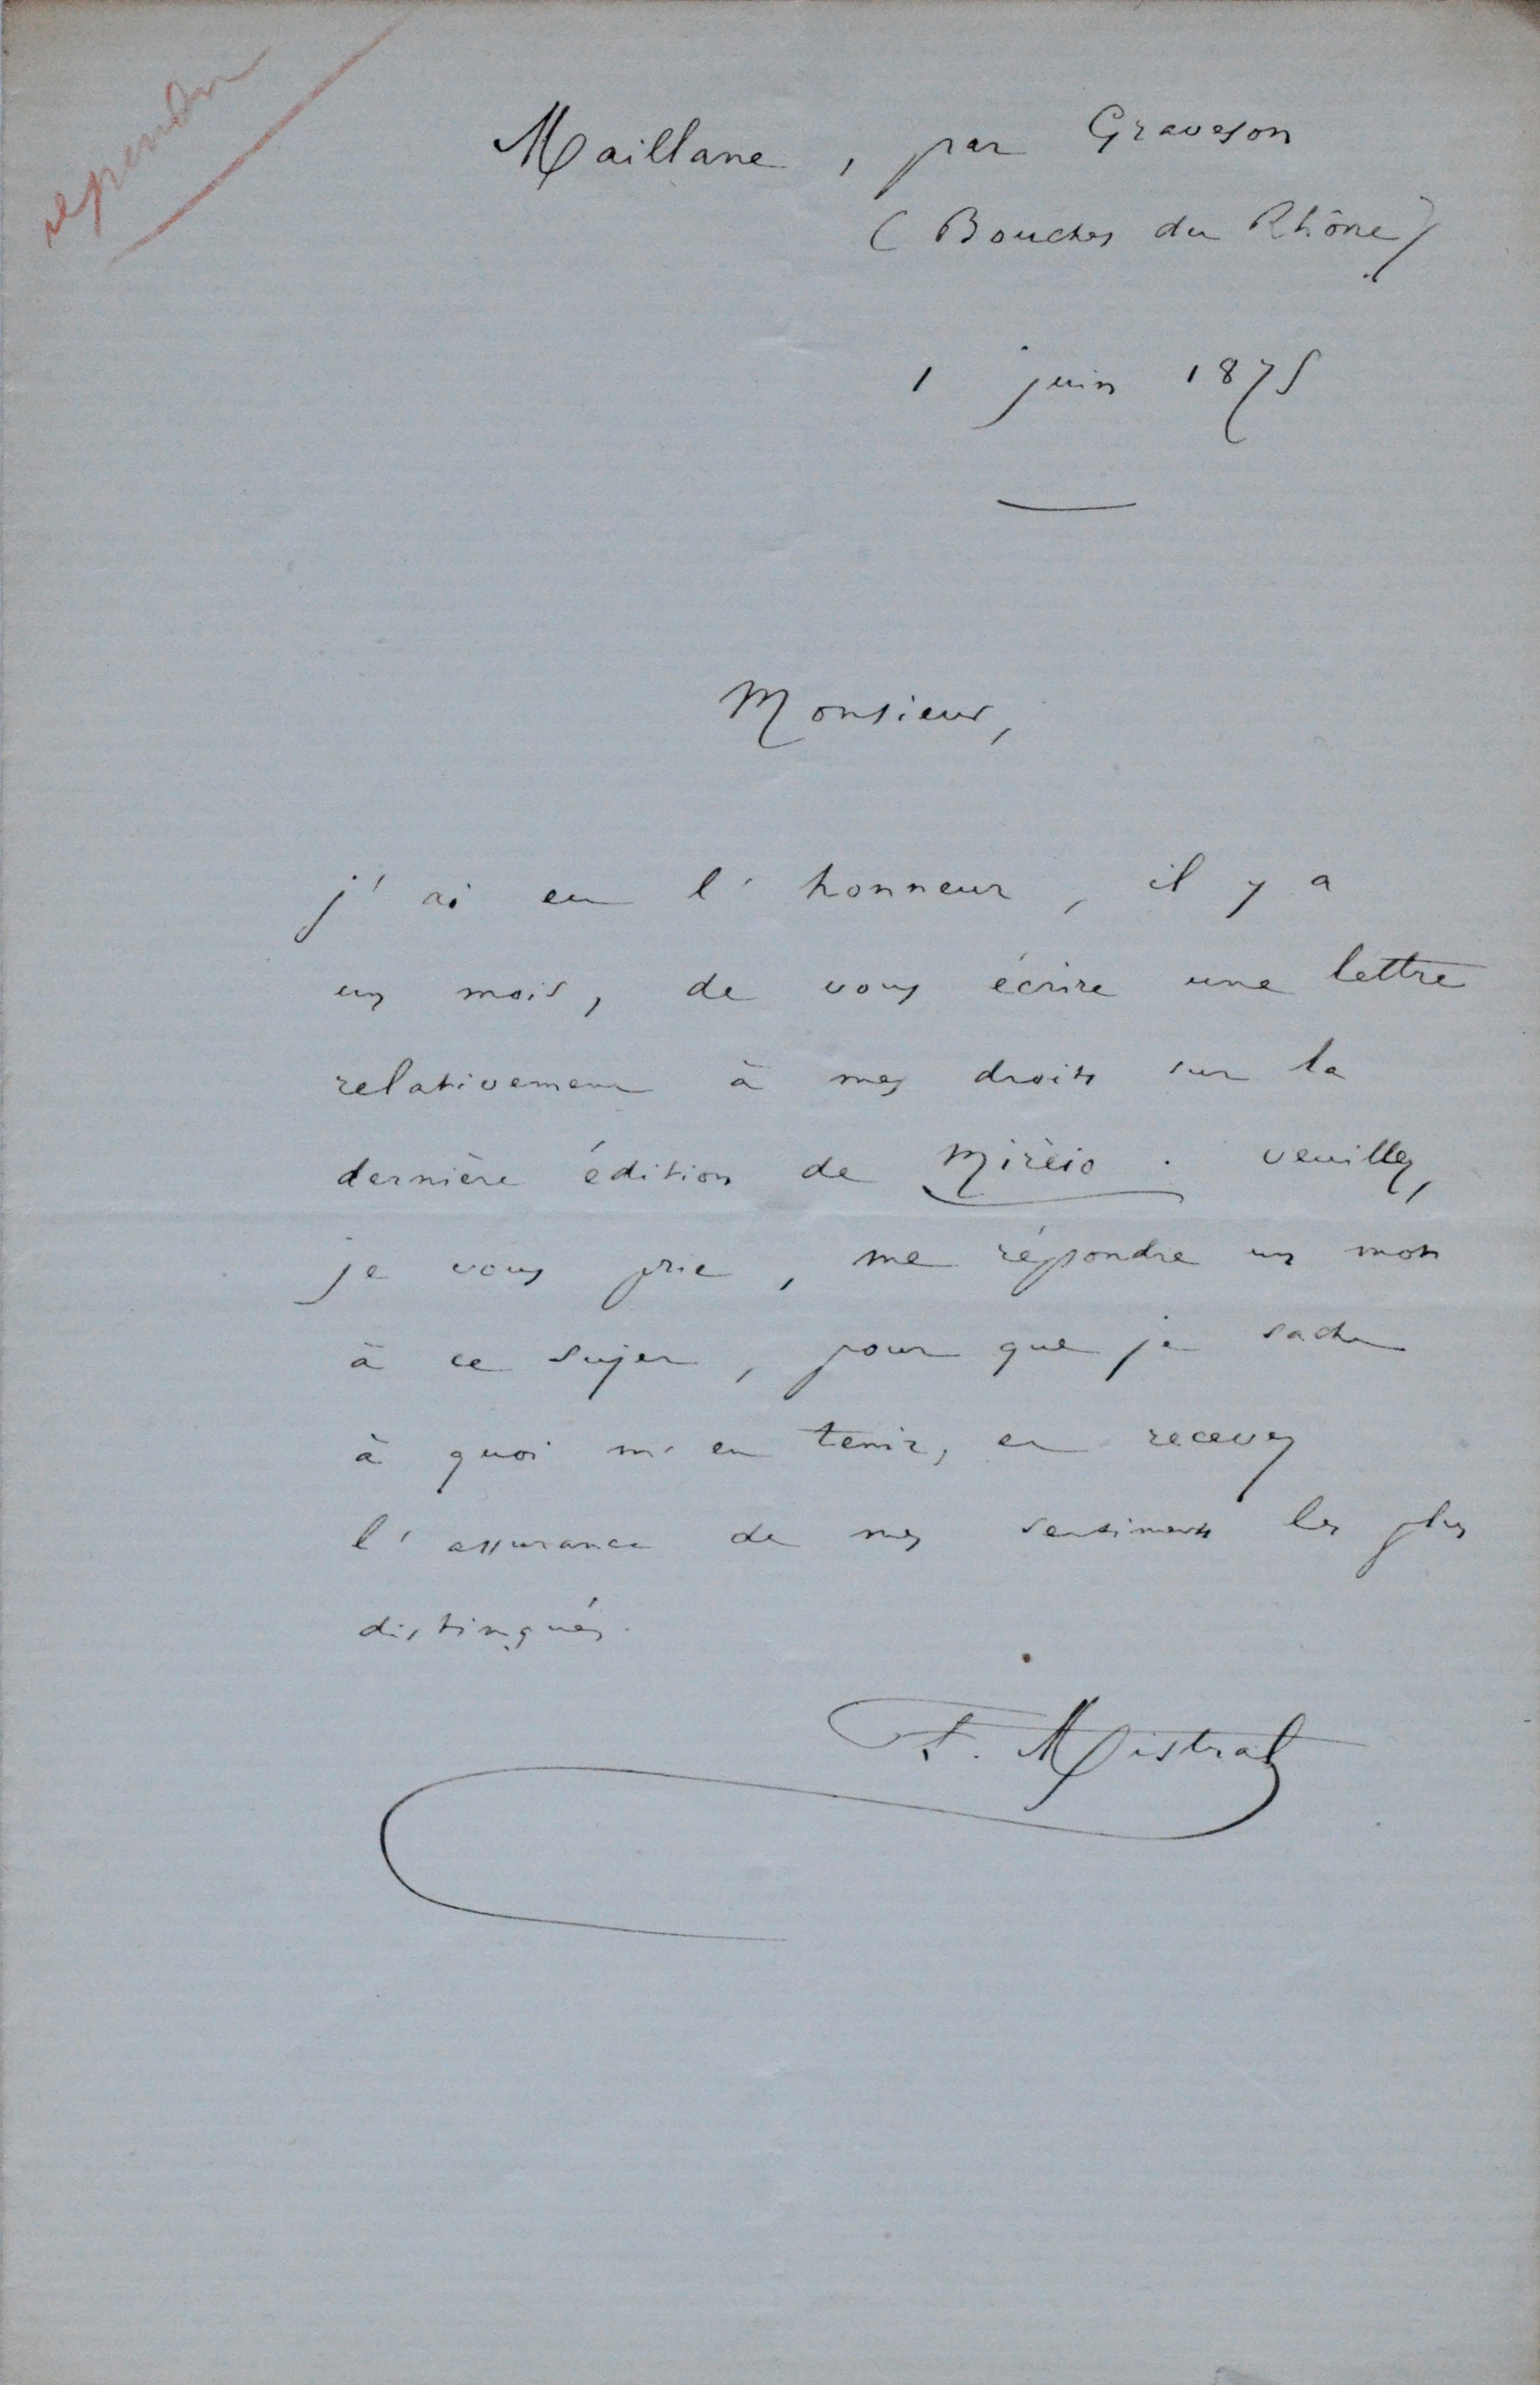 repondu
Maillane, par Graveson
(Bouches du Rhône)
1 juin 1875
Monsieur,
j'ai eu l'honneur, il y a
un mois, de vous écrire une lettre
relativement à mes droits sur la
dernière édition de Mirèio. veuillez,
je vous prie, me répondre un mot
à ce sujet, pour que je sache
à quoi m'en tenir, et recevez
l'assurance de mes sentiments les plus
distingués.
F. Mistral